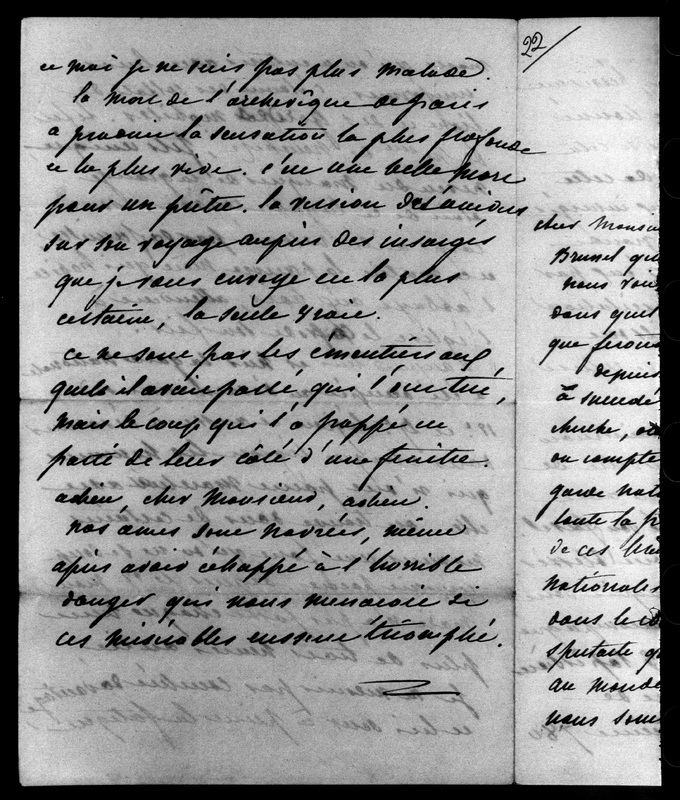 et moi je ne suis pas plus malade.
la mort de l'archevêque de paris
a produit la sensation la plus profonde
et la plus vive. c'est une belle mort
pour un prêtre. la version des
sur son voyage auprès des insurgés
que je vous envoye est la plus
certaine, la seule vraie.
ce ne sont pas les émeutiers aux
quels il avait parlé qui l'ont tué,
mais le coup qui l'a frappé est
parti de leur côté d'une fenêtre.
adieu, cher Monsieur, adieu.
nos âmes sont navrées, même
après avoir échappé à l'horrible
danger qui nous menaçoit si
ces misérables eussent triomphé.
22
cher Monsieu
Brunet qu
nous
dans quel
que ferons
depuis
a succédé
cherche,
on compte
garde nat
toute la
de ces
nationales
dans le
spectacle q
au monde
nous som